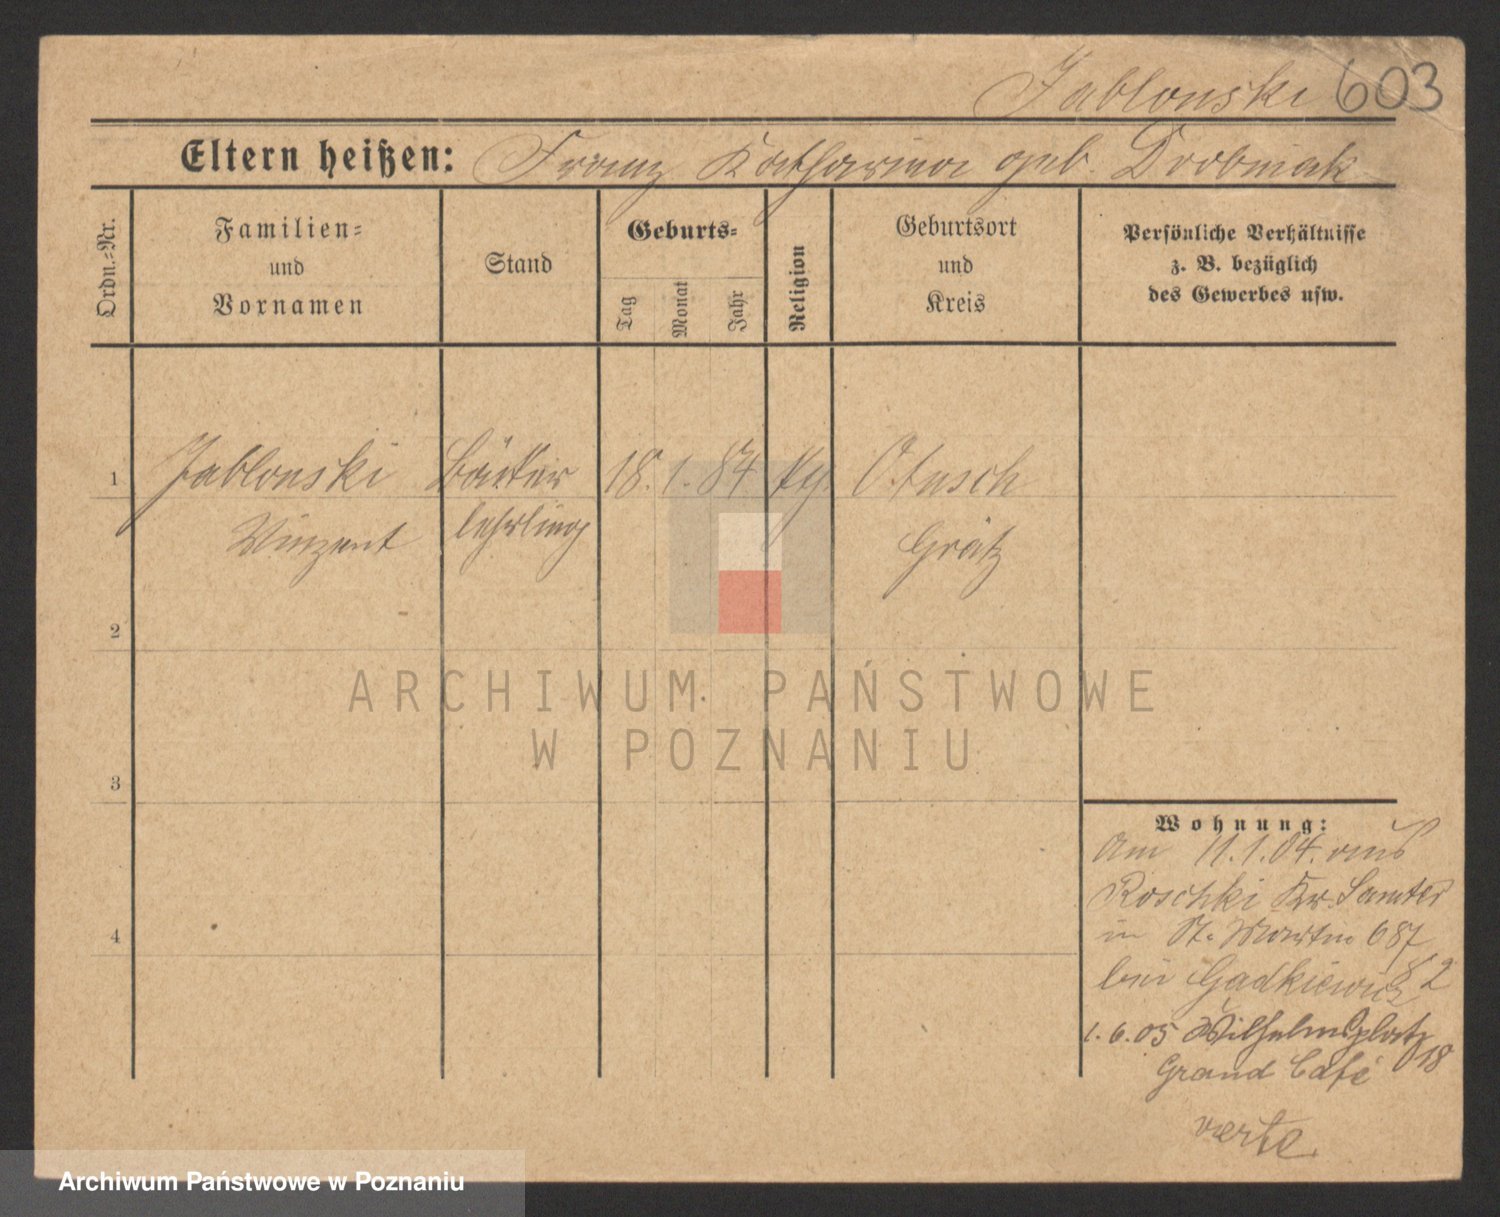 Jablonski 603
Eltern heißen: Franz Katharina geb. Drobniak
Ordn.-Nr.
Familien-
und
Vornamen
Stand
Geburts-
Tag
Monat
Jahr
Religion
Geburtsort
und
Kreis
Persönliche Verhältnisse
z. B. bezüglich
des Gewerbes usw.
1 Jablonski Bäcker 18. 1. 87 Otusch
Vinzent lehrling Grätz
2
3
4
ARCHIWUM PAŃSTWOWE
W POZNANIU
Wohnung:
Am 11.1.04. aus
Roschki Kr. Samter
in St. Martin 687
bei Gadkiewicz 2
1.6.05 Wilhelmsplatz
Grand Café 18
verte
Archiwum Państwowe w Poznaniu